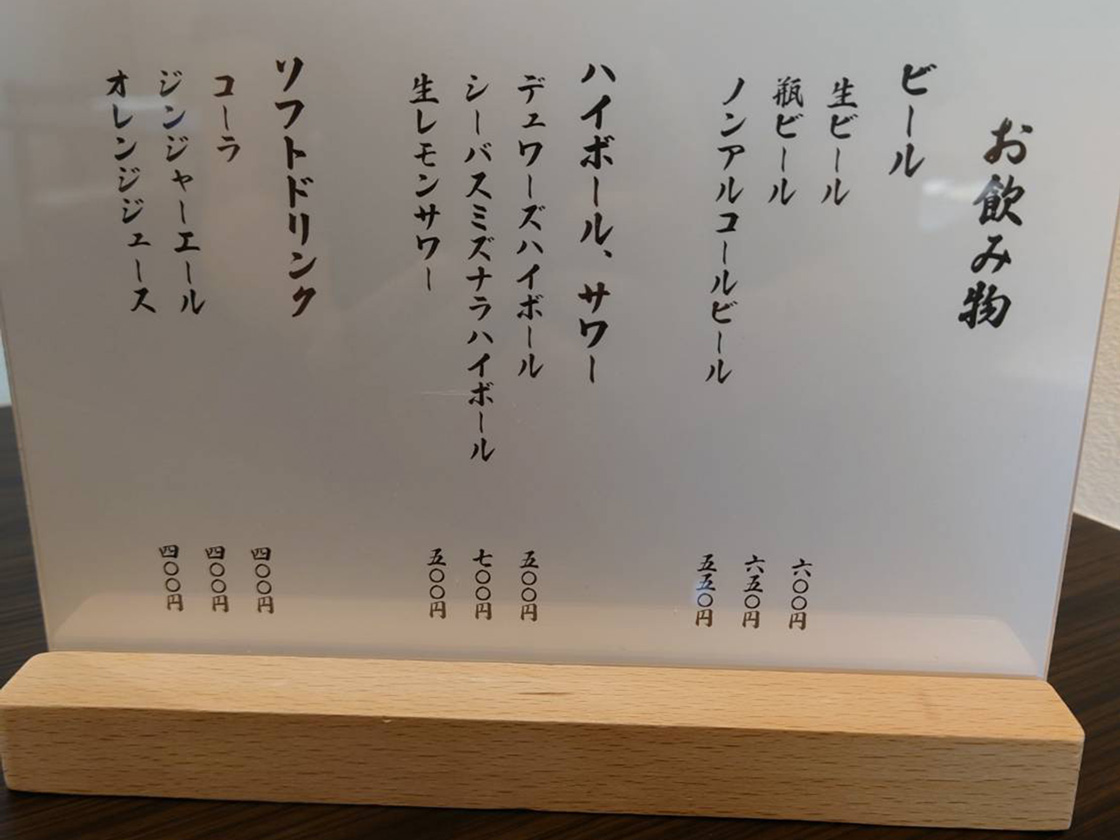 お飲み物
ビール
生ビール 六〇〇円
瓶ビール 六五〇円
ノンアルコールビール 五五〇円
ハイボール、サワー
デュワーズハイボール 五〇〇円
シーバスミズナラハイボール 七〇〇円
生レモンサワー 五〇〇円
ソフトドリンク
コーラ 四〇〇円
ジンジャーエール 四〇〇円
オレンジジュース 四〇〇円